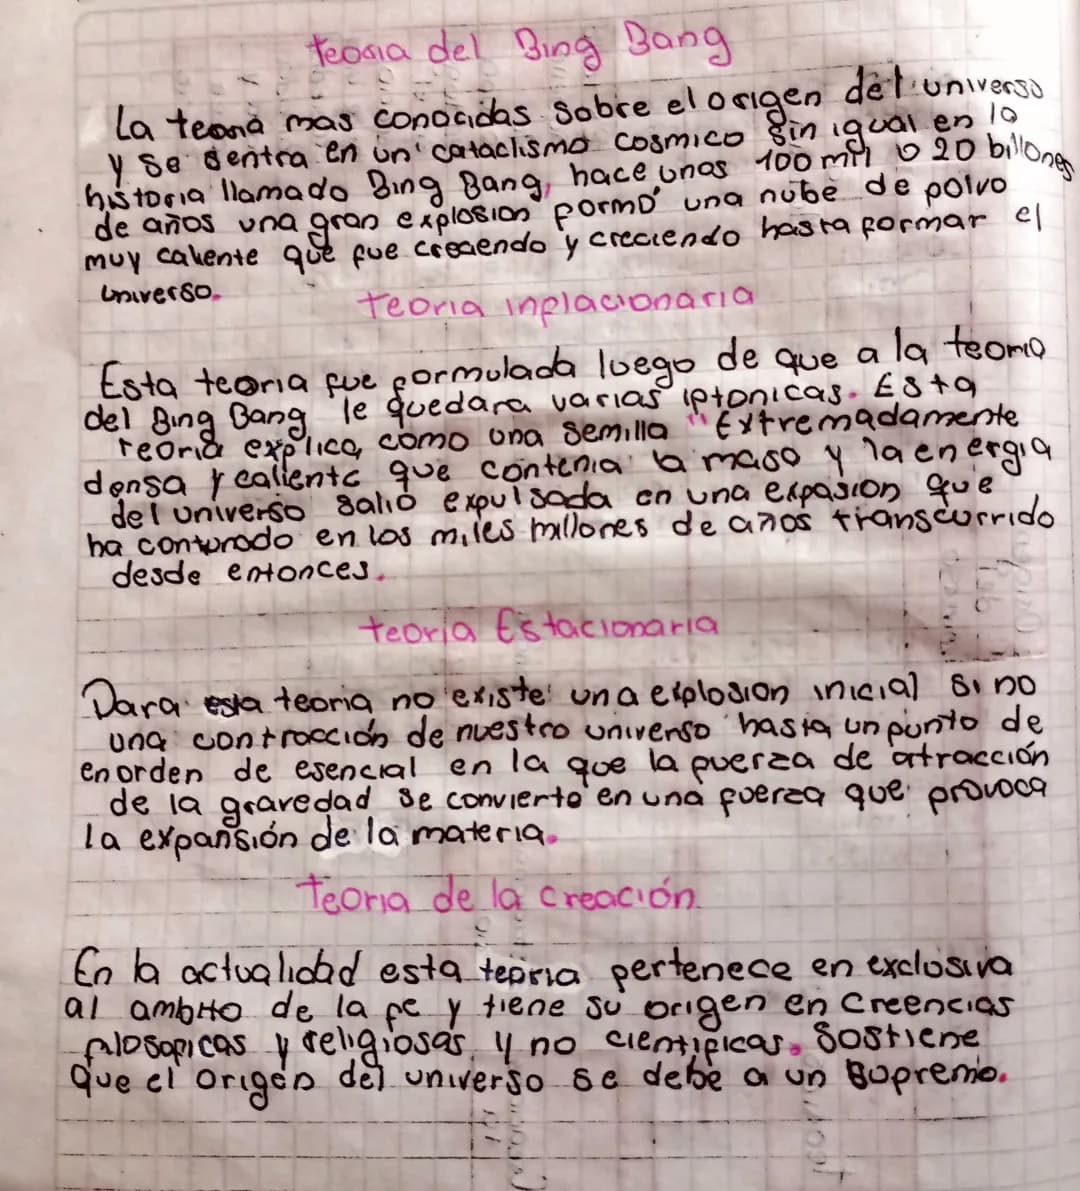 teoria del Bing Bang
La teoria mas conocidas sobre el origen del universo
y se sentra en un cataclismo cosmico sin igual en la
historia llamado Bing Bang, hace unas 100 mil o 20 billones
de años una gran explosion formo una nube de polvo
muy caliente que fue creciendo y creciendo hasta formar el
universo.
teoria inflacionaria
Esta teoria fue formulada luego de que a la teoria
del Bing Bang le quedara varias EstA
teoria explica, como una semilla "Extremadamente
densa y caliente que contenia la masa y la energia
del universo salio expulsada en una expasion que
ha en los miles millones de años transcurrido
desde entonces.
teoria Estacionaria
Para esta teoria no existe una explosion inicial si no
una contracción de nuestro universo hasta un punto de
en orden de esencial en la que la fuerza de atracción
de la gravedad se convierte en una fuerza que provoca
la expansión de la materia.
Teoria de la creación.
En la actualidad esta teoria pertenece en exclosiva
al ambito de la fe y tiene su origen en creencias
filosoficas y religiosas, y no cientificas. Sostiene
que el origen del universo se debe a un supremo.